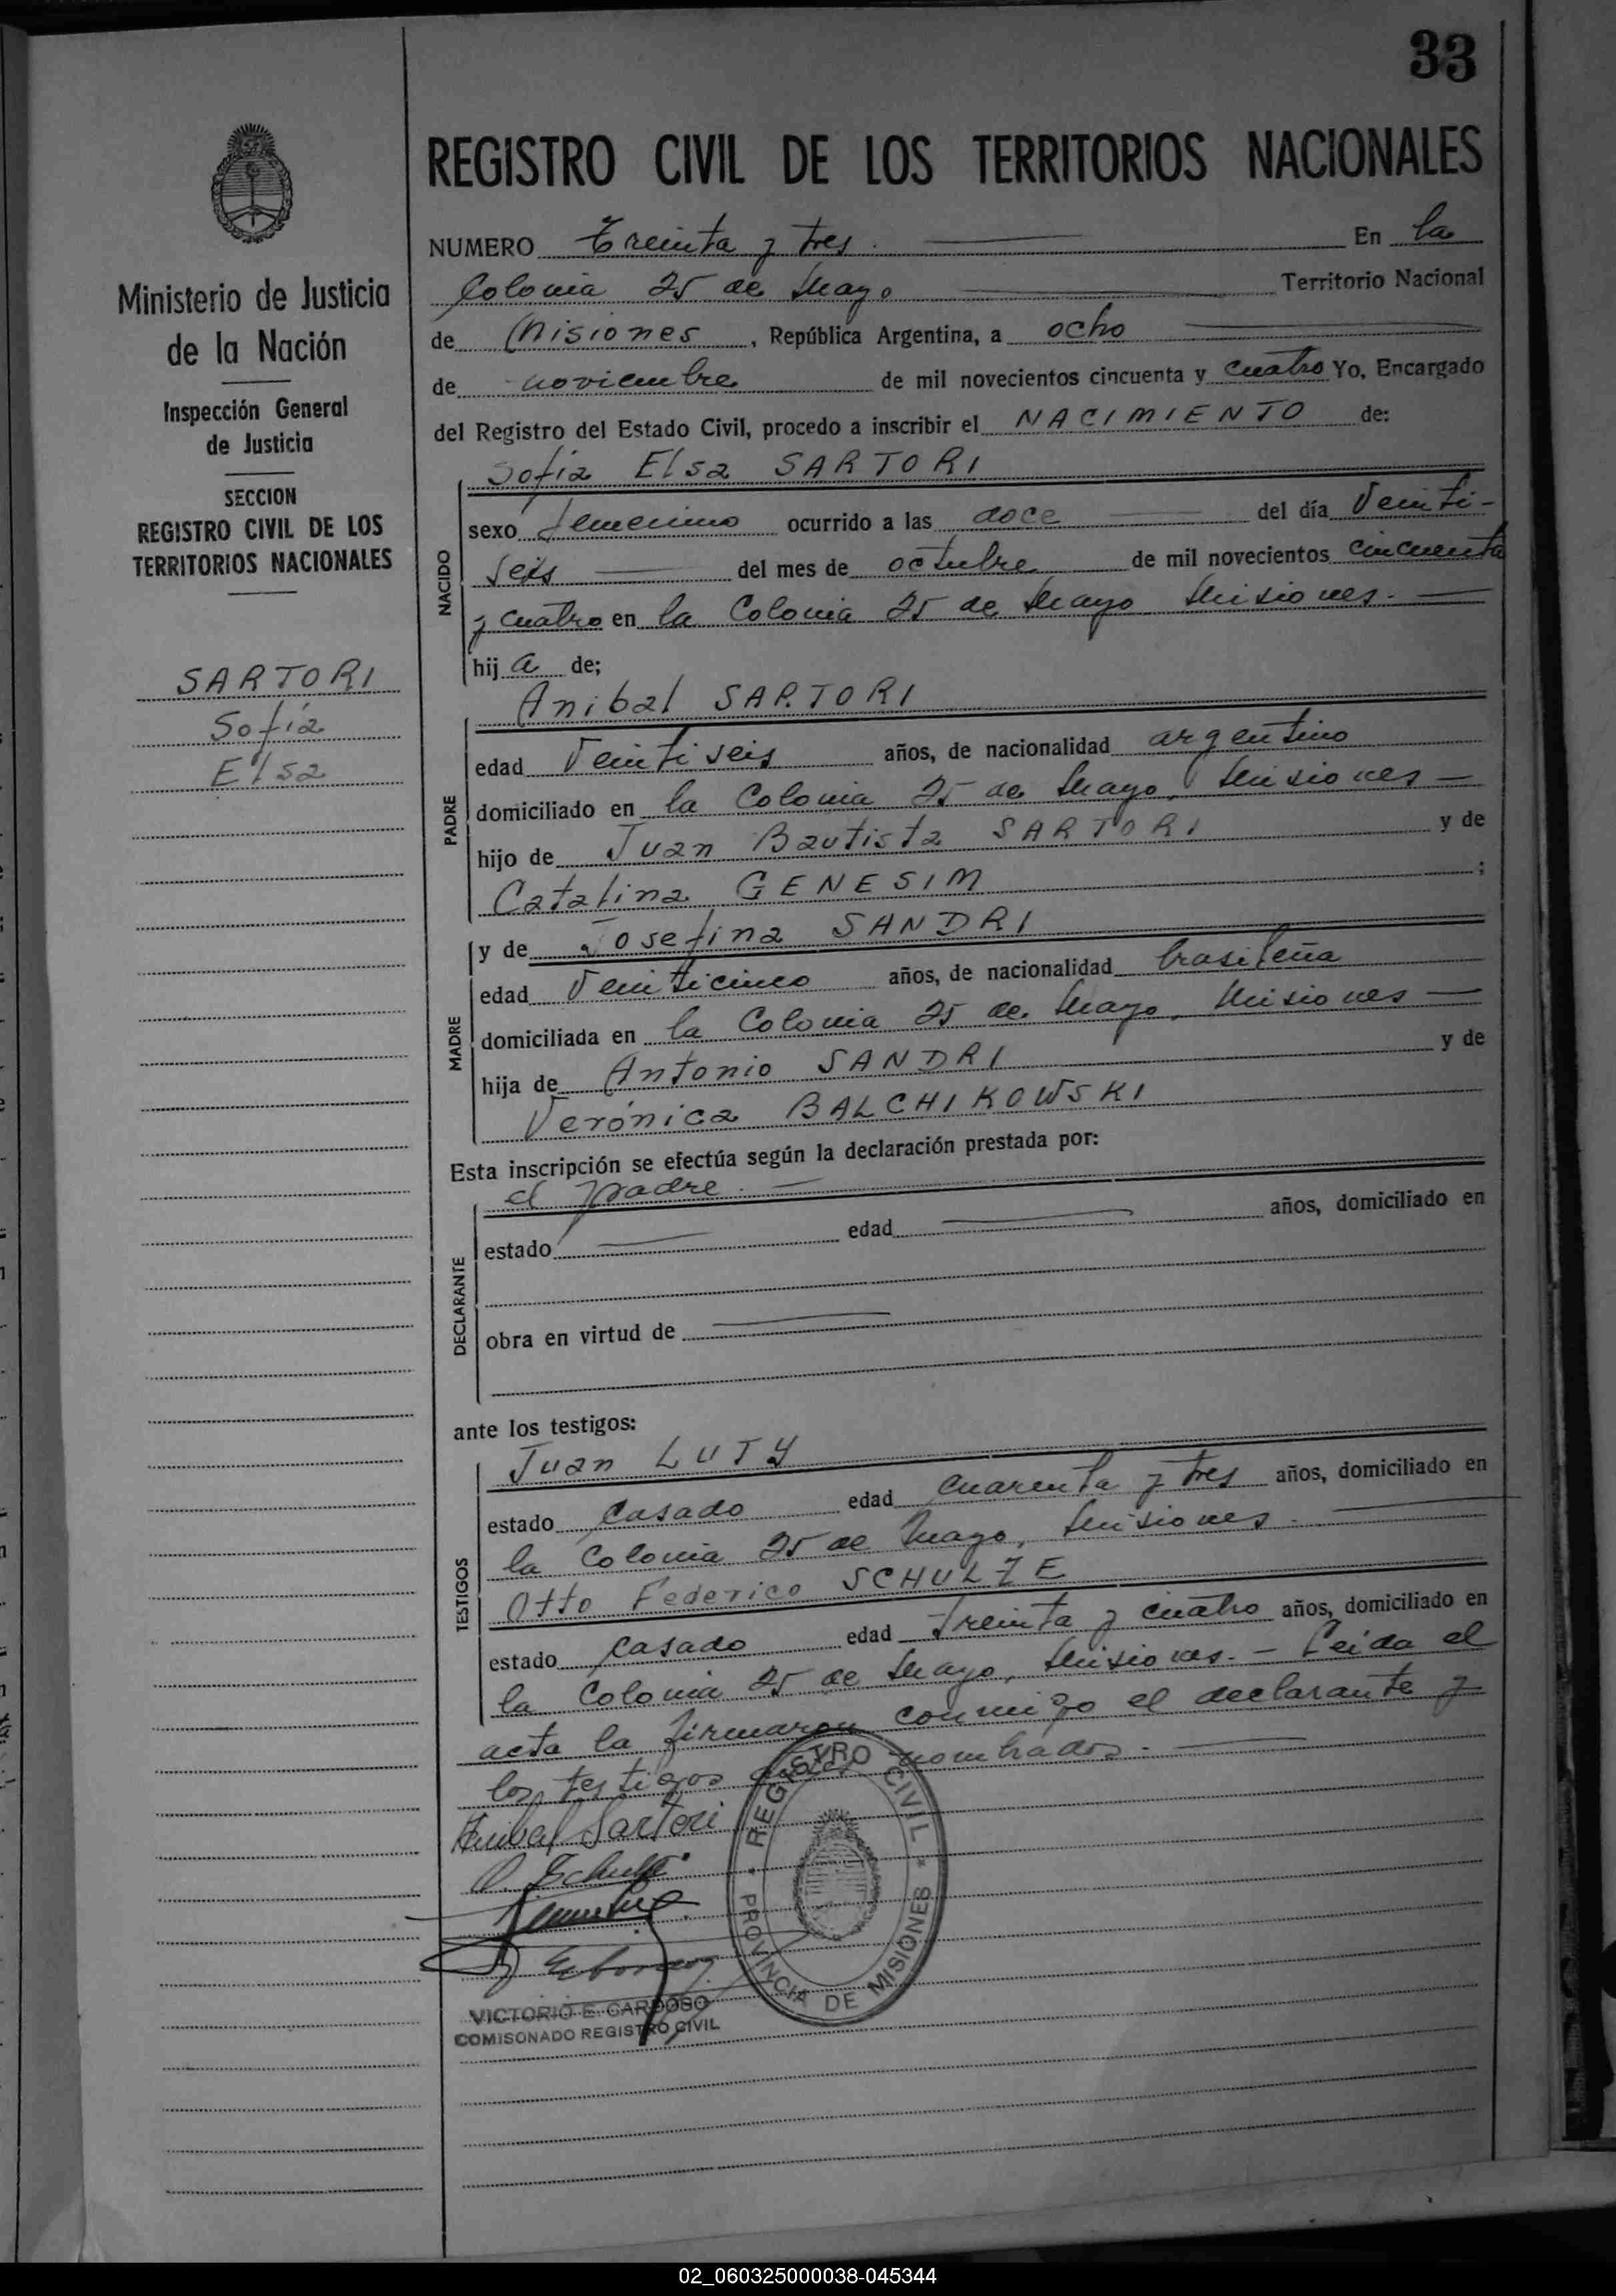 33
REGISTRO CIVIL DE LOS TERRITORIOS NACIONALES
Ministerio de Justicia
de la Nación
Inspección General
de Justicia
SECCION
REGISTRO CIVIL DE LOS
TERRITORIOS NACIONALES
SARTORI
Sofía
Elsa
NUMERO Treinta y tres. En la
Colonia 25 de Mayo Territorio Nacional
de Misiones, República Argentina, a ocho
de noviembre de mil novecientos cincuenta y cuatro Yo, Encargado
del Registro del Estado Civil, procedo a inscribir el NACIMIENTO de:
Sofía Elsa SARTORI
NACIDO
sexo femenino ocurrido a las doce del día Veinti-
seis del mes de octubre de mil novecientos cincuenta
y cuatro en la Colonia 25 de Mayo Misiones.
hij a de;
Anibal SARTORI
PADRE
edad Veintiseis años, de nacionalidad argentino
domiciliado en la Colonia 25 de Mayo, Misiones
hijo de Juan Bautista SARTORI y de
Catalina GENESIM ;
y de Josefina SANDRI
MADRE
edad Veinticinco años, de nacionalidad brasileña
domiciliada en la Colonia 25 de Mayo, Misiones
hija de Antonio SANDRI y de
Verónica BALCHIKOWSKI
Esta inscripción se efectúa según la declaración prestada por:
el padre.
DECLARANTE
estado edad años, domiciliado en
obra en virtud de
ante los testigos:
Juan LUTY
TESTIGOS
estado Casado edad cuarenta y tres años, domiciliado en
la Colonia 25 de Mayo, Misiones.
Otto Federico SCHULZE
estado Casado edad Treinta y cuatro años, domiciliado en
la Colonia 25 de Mayo, Misiones. - Leída el
acta la firmaron conmigo el declarante y
los testigos nombrados.
Anibal Sartori
O. Schulze
REGISTRO CIVIL
PROVINCIA DE MISIONES
VICTORIO E. CARDOSO
COMISONADO REGISTRO CIVIL
02_060325000038-045344